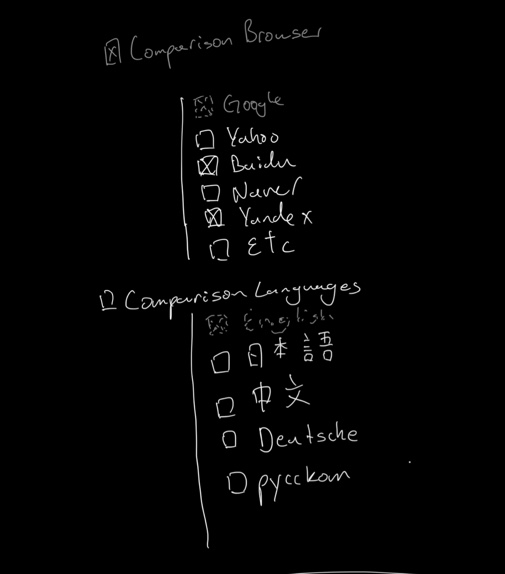 Comparison Browser
Google
Yahoo
Baidu
Naver
Yandex
Etc
Comparison Languages
English
日本語
中文
Deutsche
русскот